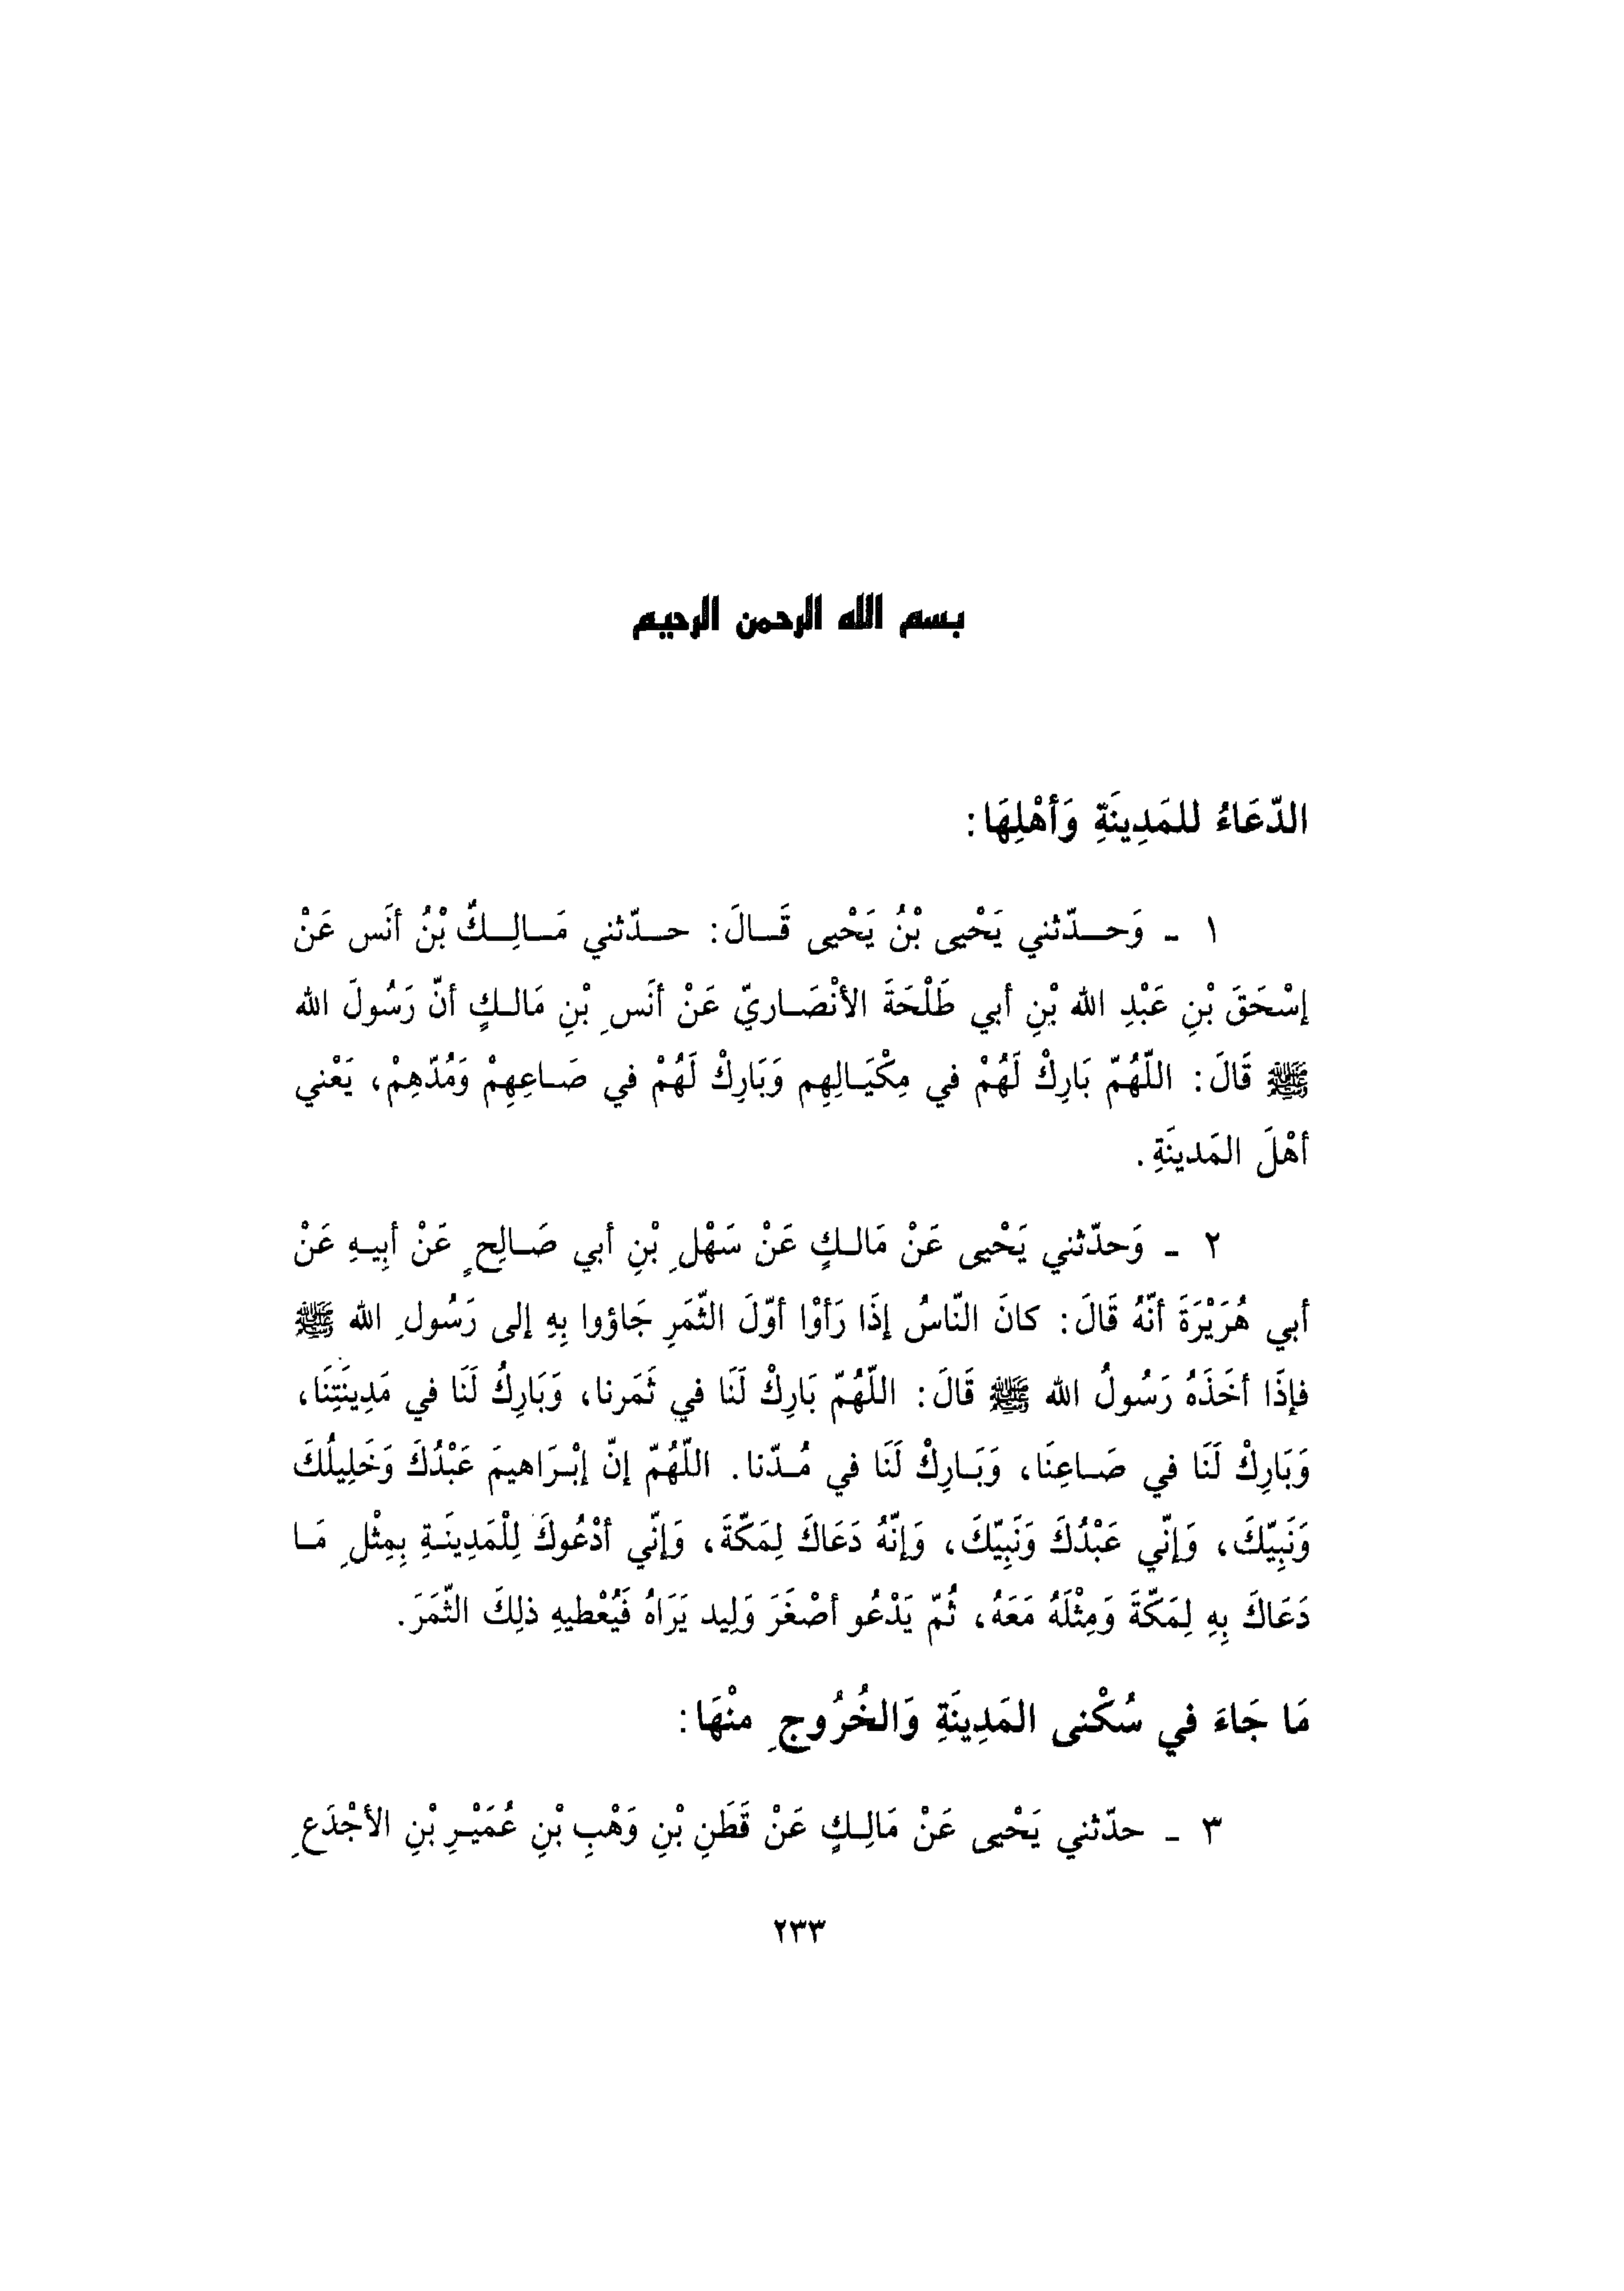 بسم الله الرحمن الرحيم
الدّعَاءُ للمَدِينَةِ وَأهْلِهَا:
١ ـ وَحـدّثني يَحْيى بْنُ يَحْيى قَـالَ: حـدّثني مَـالِـكٌ بْنُ أنَس عَنْ
إسْحَقَ بْنِ عَبْدِ الله بْنِ أبي طَلْحَةَ الأنْصَـاريّ عَنْ أنَسِ بْنِ مَالـكٍ أنّ رَسُولَ الله
ﷺ قَالَ: اللّهُمّ بَارِكْ لَهُمْ في مِكْيَـالِهِم وَبَارِكْ لَهُمْ في صَـاعِهِمْ وَمُدّهِمْ، يَعْني
أهْلَ المَدينَةِ.
٢ ـ وَحدّثني يَحْيى عَنْ مَالـكٍ عَنْ سَهْلِ بْنِ أبي صَـالِحٍ عَنْ أبِيـهِ عَنْ
أبي هُرَيْرَةَ أنّهُ قَالَ: كانَ النّاسُ إذَا رَأوْا أوّلَ الثّمَرِ جَاؤوا بِهِ إلى رَسُولِ الله ﷺ
فإذَا أخَذَهُ رَسُولُ الله ﷺ قَالَ: اللّهُمّ بَارِكْ لَنَا في ثَمَرنا، وَبَارِكُ لَنَا في مَدِينَتِنَا،
وَبَارِكْ لَنَا في صَـاعِنَا، وَبَـارِكْ لَنَا في مُـدّنا. اللّهُمّ إنّ إبْـرَاهيمَ عَبْدُكَ وَخَلِيلُكَ
وَنَبِيّكَ، وَإنّي عَبْدُكَ وَنَبِيّكَ، وَإنّهُ دَعَاكَ لِمَكّةَ، وَإنّي أدْعُوكَ لِلْمَدِينَـةِ بِمِثْلِ مَـا
دَعَاكَ بِهِ لِمَكّةَ وَمِثْلَهُ مَعَهُ، ثُمّ يَدْعُو أصْغَرَ وَلِيد يَرَاهُ فَيُعْطيهِ ذلِكَ الثّمَرَ.
مَا جَاءَ في سُكْنى المَدِينَةِ وَالخُرُوجِ منْهَا:
٣ ـ حدّثني يَحْيى عَنْ مَالِـكٍ عَنْ قَطَنِ بْنِ وَهْبِ بْنِ عُمَيْـرِ بْنِ الأجْدَعِ
٢٣٣